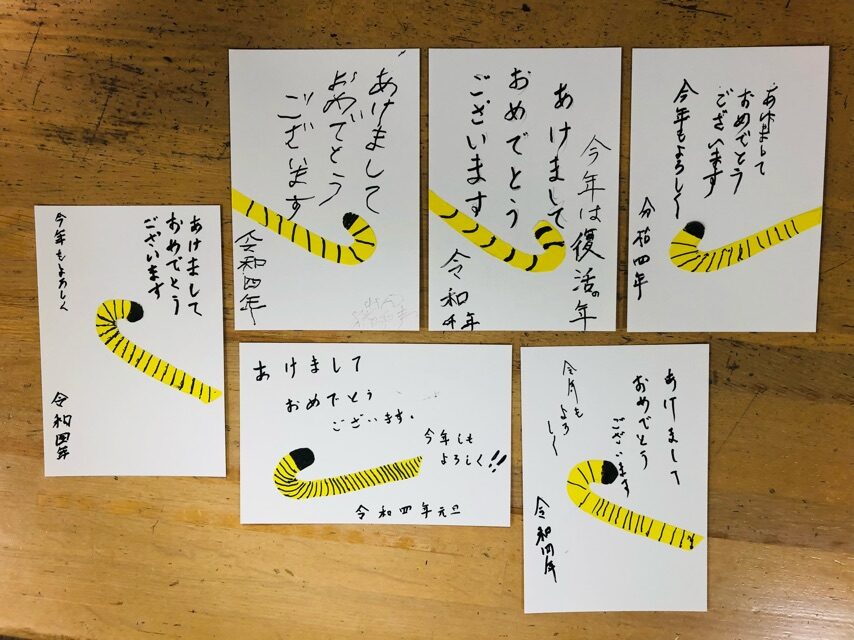 あけまして
おめでとう
ございます
令和四年
今年は復活の年
あけまして
おめでとう
ございます
令和4年
あけまして
おめでとう
ございます
今年もよろしく
令和四年
あけまして
おめでとう
ございます
今年もよろしく
令和四年
あけまして
おめでとう
ございます。
今年しも
よろしく!!
令和四年元旦
あけまして
おめでとう
ございます
今年も
よろ
しく
令和四年